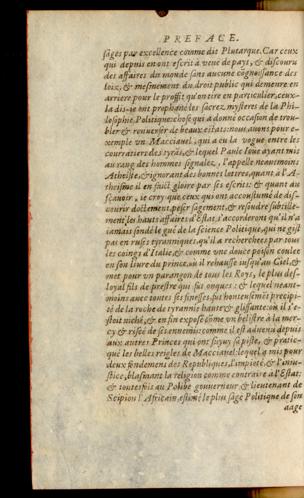 PREFACE.
sages par excellence comme dit Plutarque. Car ceux
qui depuis en ont escrit à veuë de pays, & discouru
des affaires du monde sans aucune cognoissance des
loix, & mesmement du droit public qui demeure en
arriere pour le proffit qu'on tire en particulier, ceux-
la dis-ie ont prophané les sacrez mysteres de la Phi-
losophie Politique: chose qui a donné occasion de trou-
bler & renuerser de beaux estats: nous auons pour e-
xemple vn Macciauel, qui a eu la vogue entre les
courratiers des tyrãs, & lequel Paule Ioue ayant mis
au rang des hommes signalez, l'appelle neantmoins
Atheiste, & ignorant des bonnes lettres, quant à l'A-
theisme il en faict gloire par ses escrits: & quant au
sçauoir, ie croy que ceux qui ont accoustumé de dis-
courir doctement, peser sagement, & resoudre subtille-
ment les hauts affaires d'Estat, s'accorderont qu'il n'a
iamais sondé le gué de la science Politique, qui ne gist
pas en ruses tyranniques, qu'il a recherchees par tous
les coings d'Italie, & comme vne douce poison coulee
en son liure du prince, où il rehausse iusqu'au Ciel, &
met pour vn parangon de tous les Roys, le plus des-
loyal fils de prestre qui fut onques: & lequel neant-
moins auec toutes ses finesses, fut honteusemẽt precipi-
té de la roche de tyrannie haute & glissante, où il s'e-
stoit niché, & en fin exposé cõme vn belistre à la mer-
cy & risee de ses ennemis: comme il est aduenu depuis
aux autres Princes qui ont suyui sa piste, & prati-
qué les belles reigles de Macciauel: lequel a mis pour
deux fondemens des Republiques, l'impieté, & l'iniu-
stice, blasmant la religion comme contraire à l'Estat:
& toutesfois au Polibe gouuerneur & lieutenant de
Scipion l'Africain, estimé le plus sage Politique de son
aage